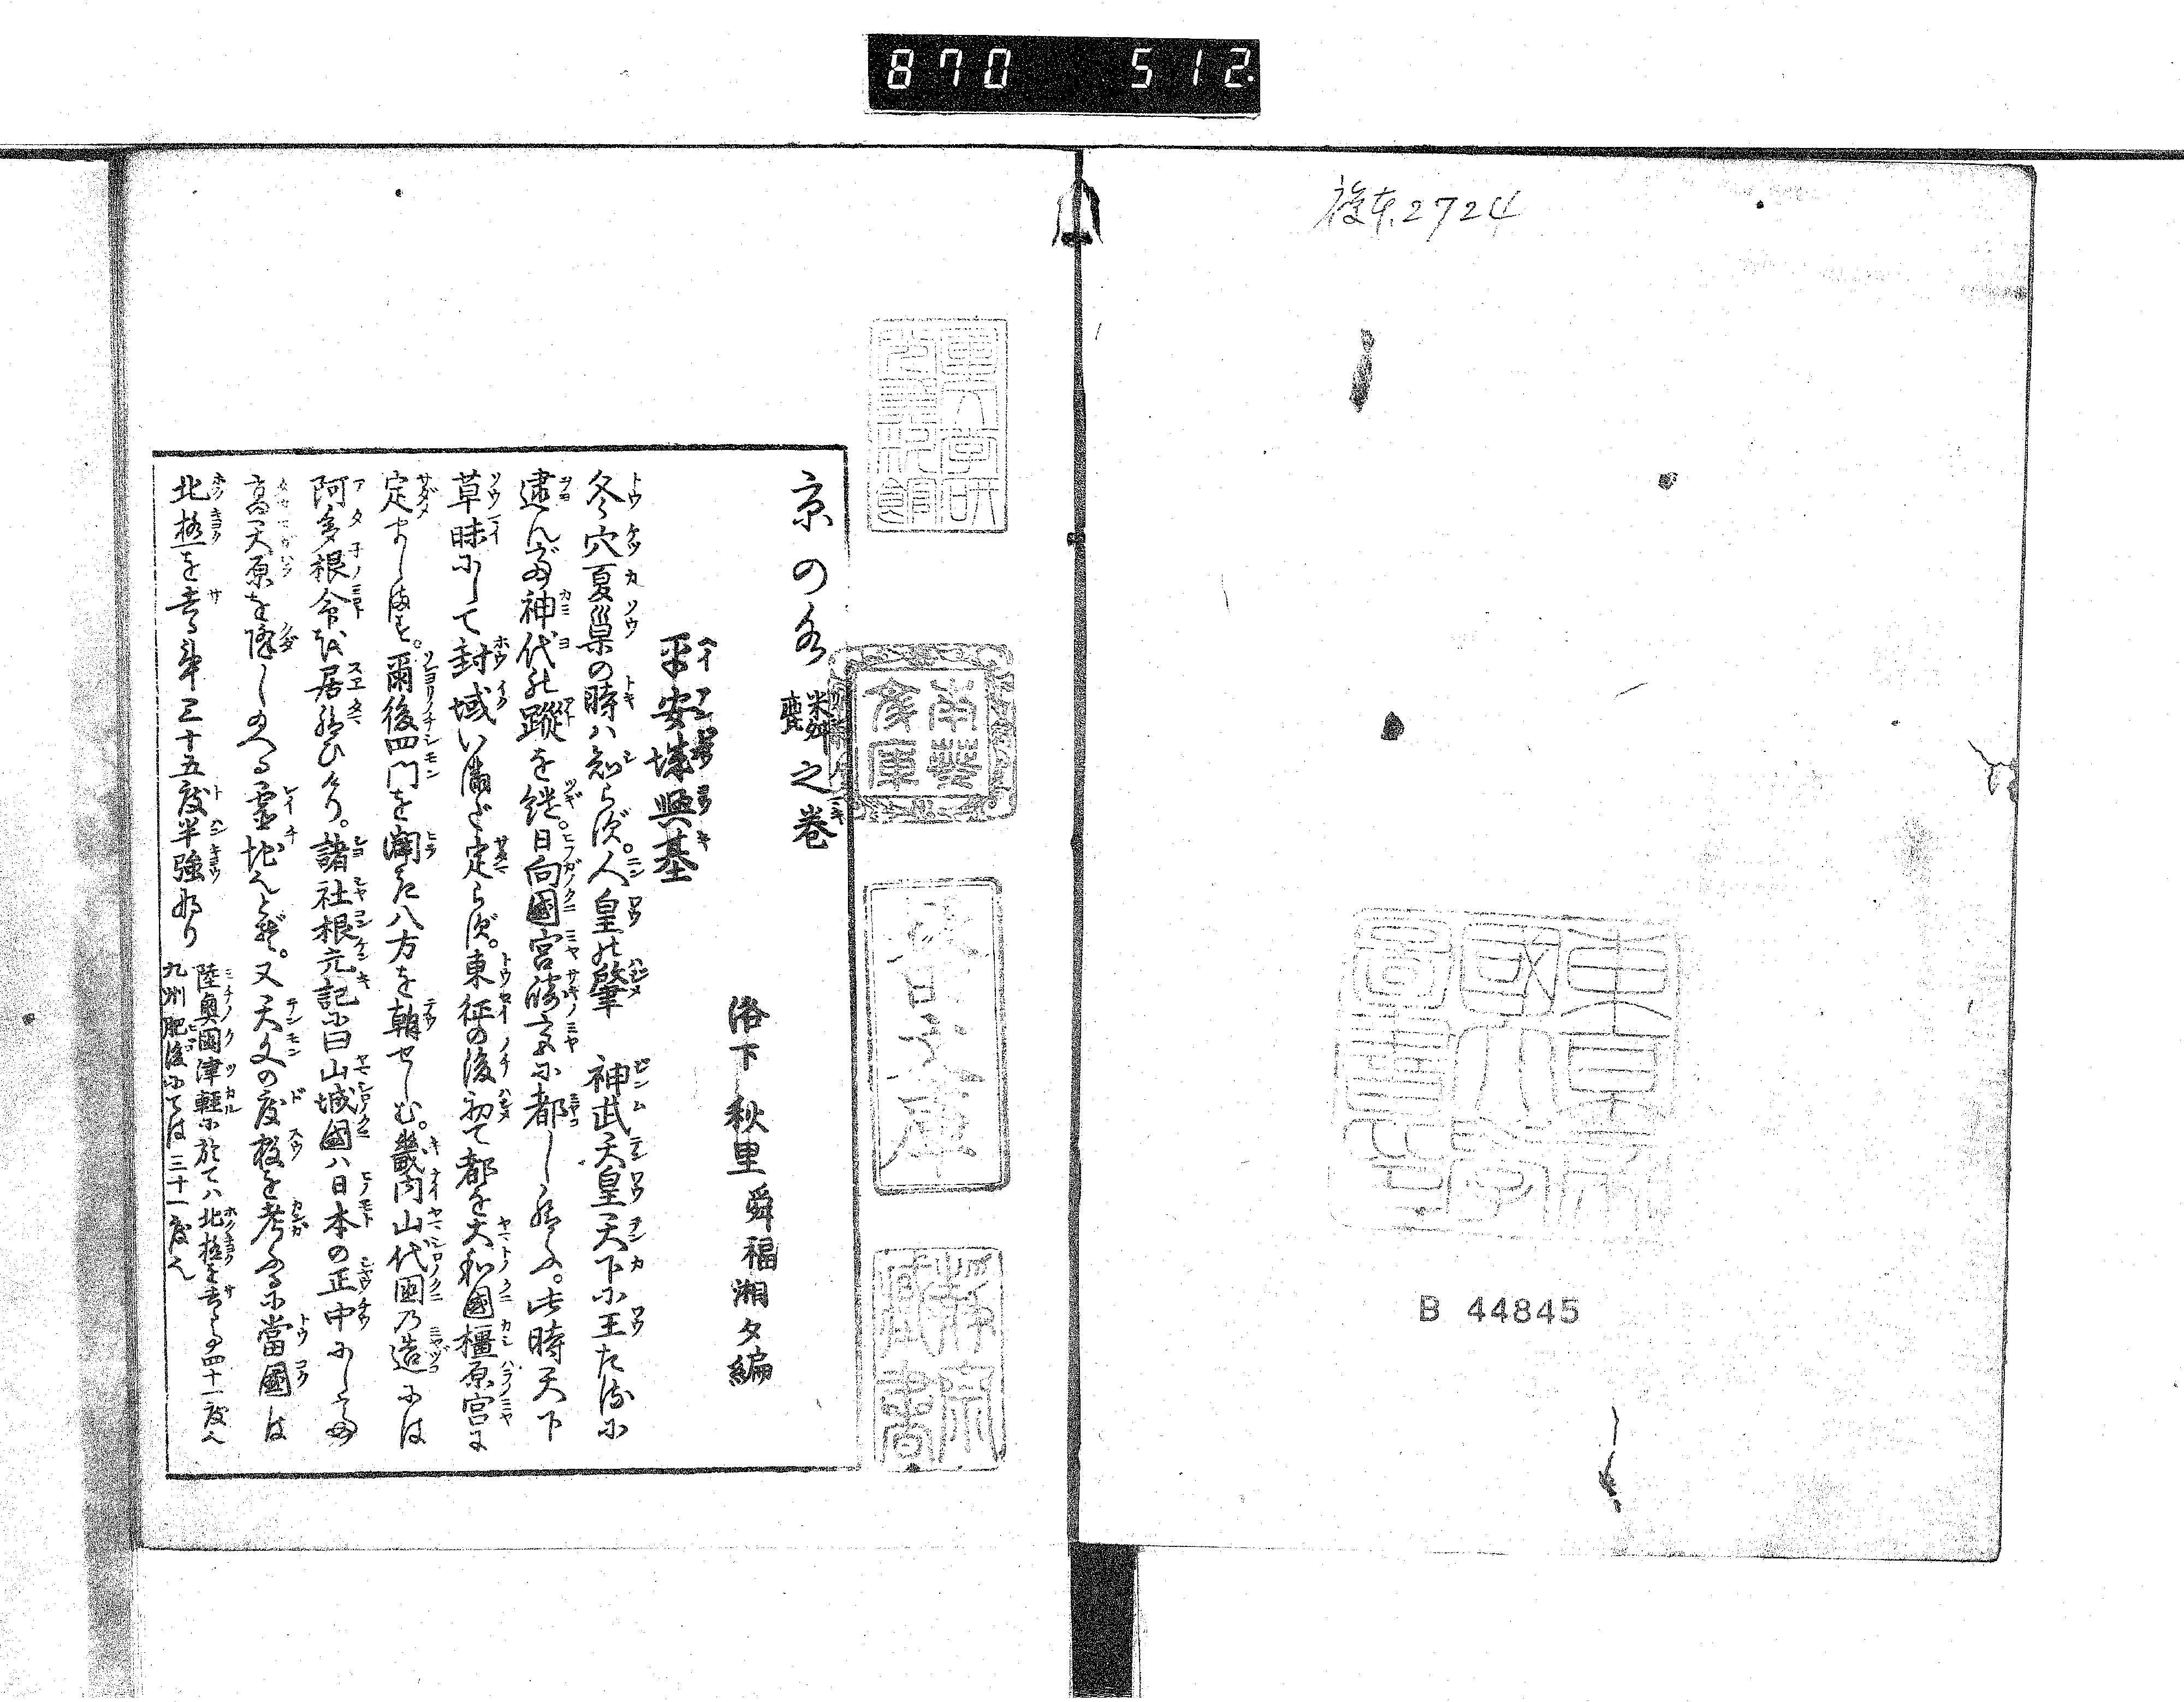 870 512
複本2724
東京帝國大學圖書印
B 44845
南葵文庫
京の水 之卷
洛下 秋里舜福湘夕編
平安城興基
冬穴夏巢の時ハ知らず。人皇の肇 神武天皇天下に王たるに
逮んで神代の蹤を繼。日向國宮崎宮に都し給ふ。此時天下
草昧にして封域いまだ定らず。東征の後初て都を大和國橿原宮に
定まします。爾後四門を闢き八方を朝せしむ。畿内山代國乃造には
阿多根命を居給ひけり。諸社根元記に曰山城國ハ日本の正中にして
高天原を降しのべる靈地也とぞ。又天文の度数を考ふるに當國は
北極を去る事三十五度半強なり
陸奥國津輕に於てハ北極を去る事四十一度也
九州肥後にては三十一度也